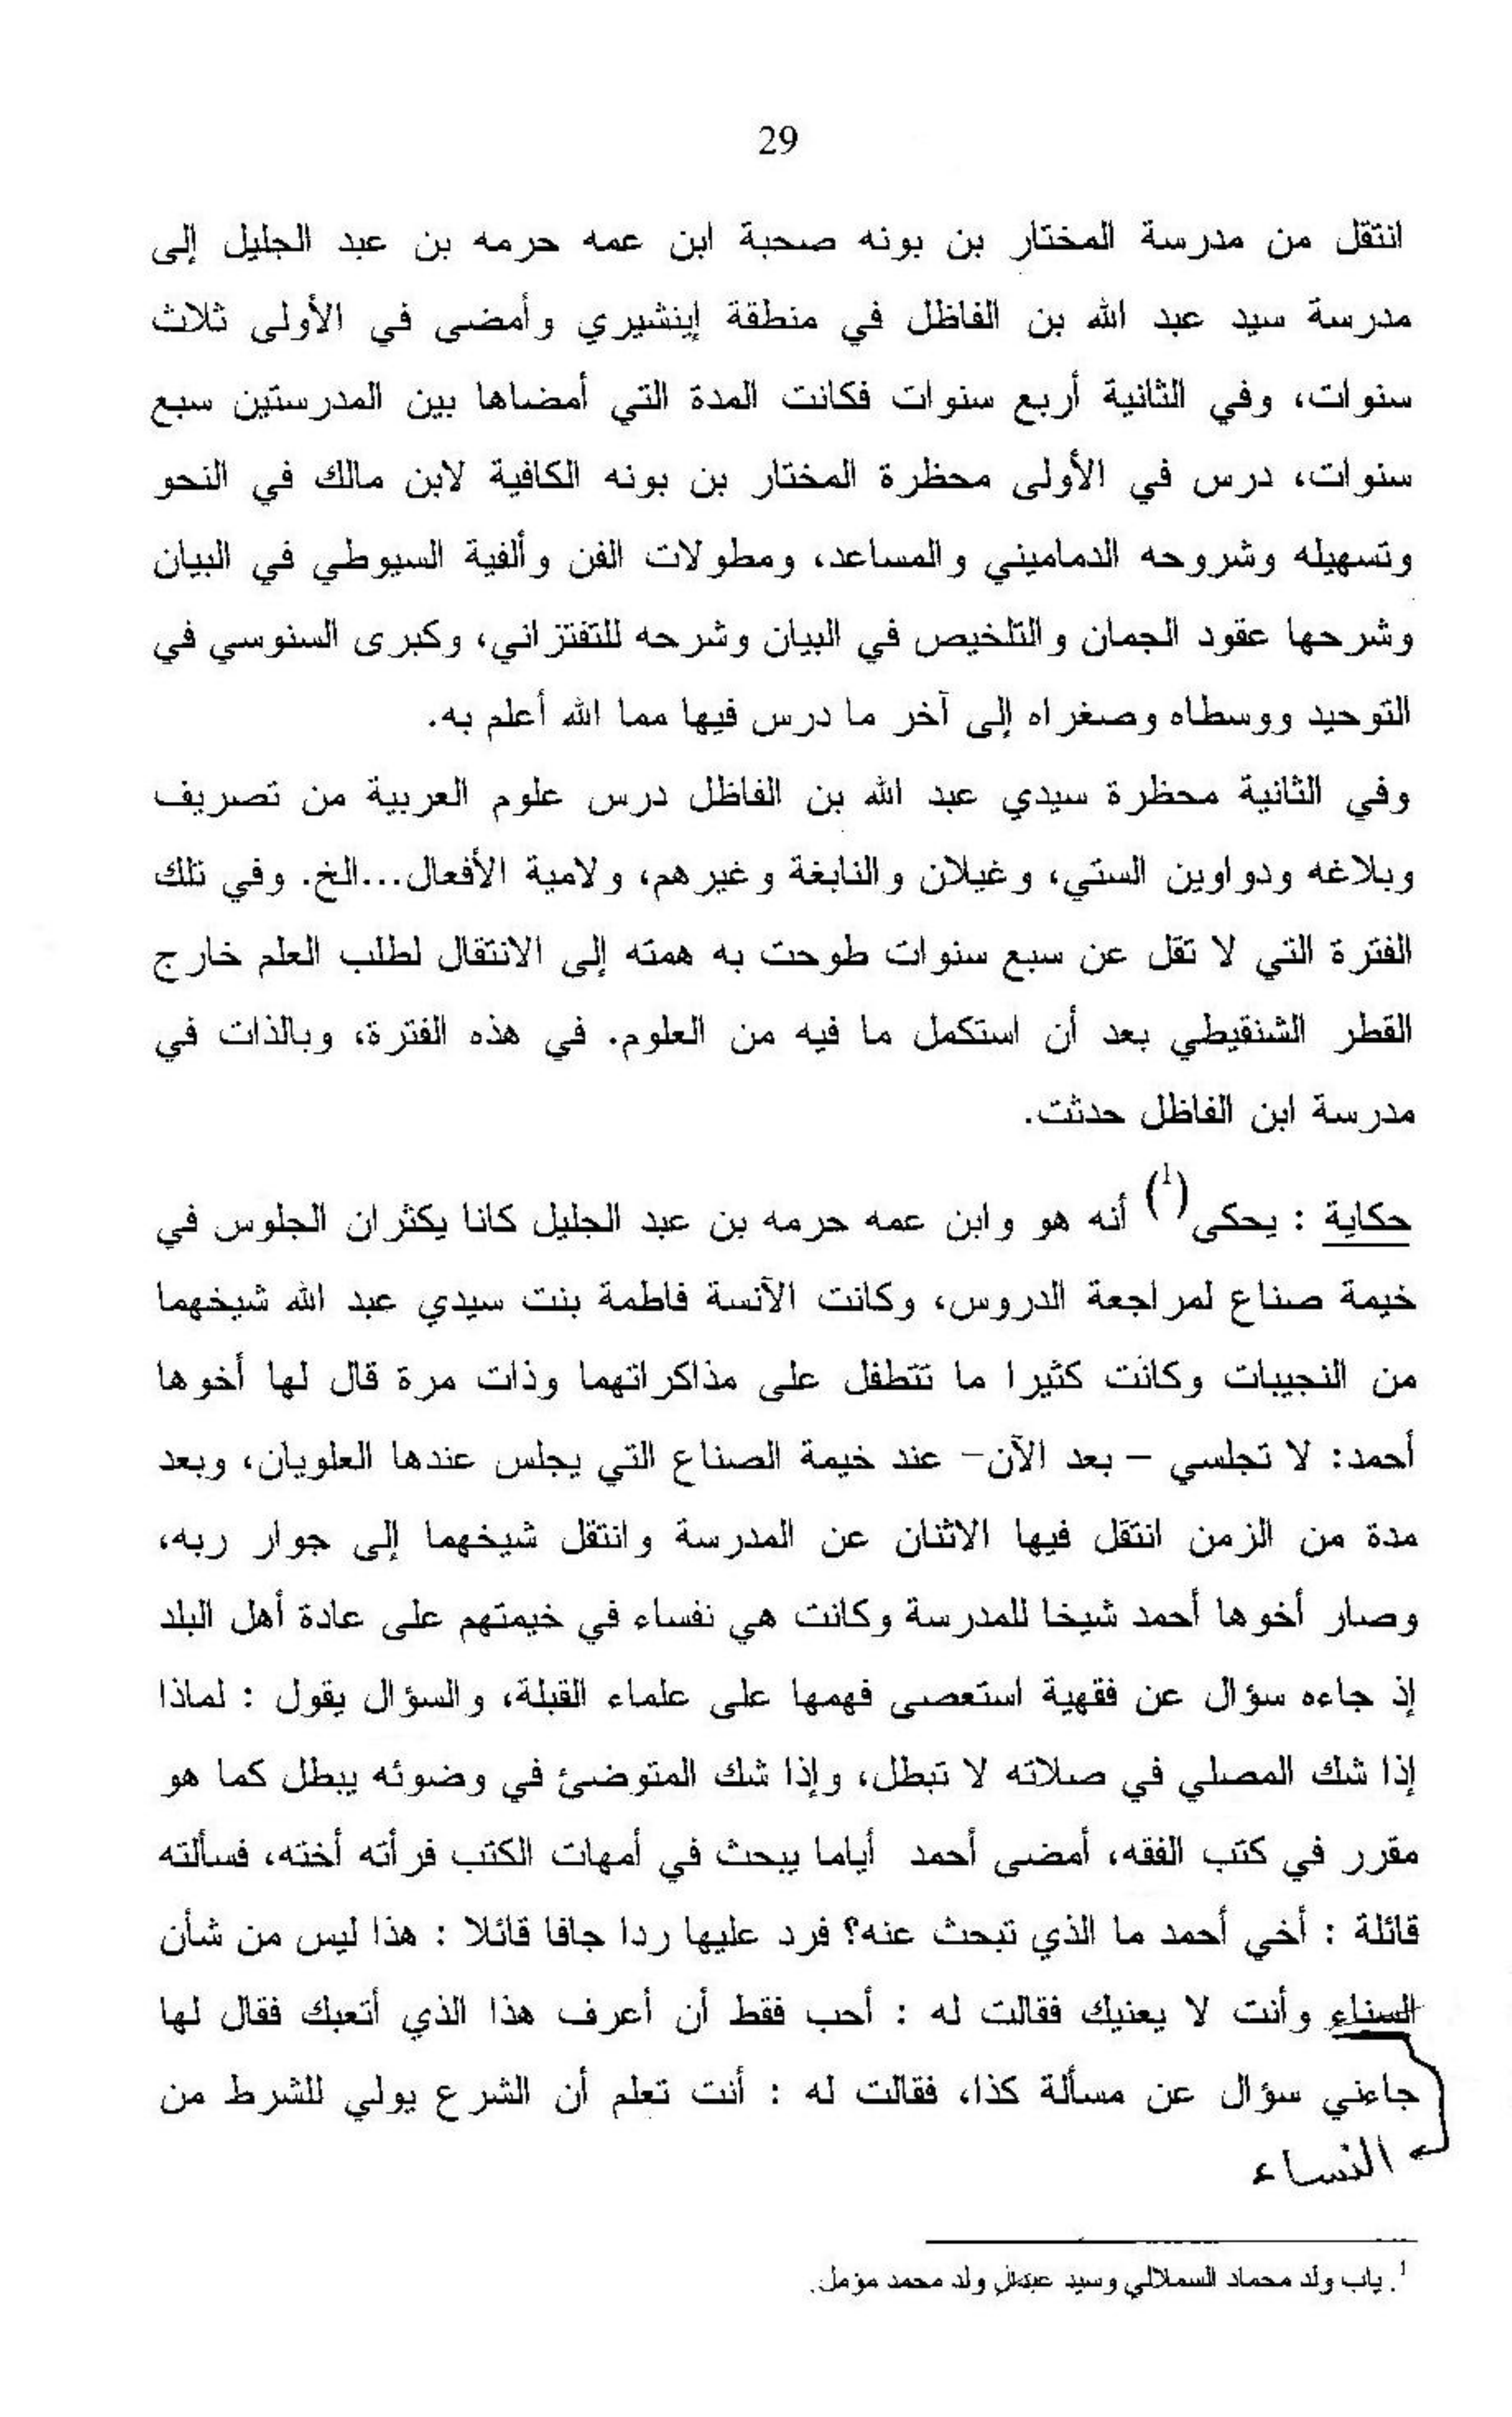 29
انتقل من مدرسة المختار بن بونه صحبة ابن عمه حرمه بن عبد الجليل إلى
مدرسة سيد عبد الله بن الفاظل في منطقة إينشيري وأمضى في الأولى ثلاث
سنوات، وفي الثانية أربع سنوات فكانت المدة التي أمضاها بين المدرستين سبع
سنوات، درس في الأولى محظرة المختار بن بونه الكافية لابن مالك في النحو
وتسهيله وشروحه الدماميني والمساعد، ومطولات الفن وألفية السيوطي في البيان
وشرحها عقود الجمان والتلخيص في البيان وشرحه للتفتزاني، وكبرى السنوسي في
التوحيد ووسطاه وصغراه إلى آخر ما درس فيها مما الله أعلم به.
وفي الثانية محظرة سيدي عبد الله بن الفاظل درس علوم العربية من تصريف
وبلاغه ودواوين الستي، وغيلان والنابغة وغيرهم، ولامية الأفعال...الخ. وفي تلك
الفترة التي لا تقل عن سبع سنوات طوحت به همته إلى الانتقال لطلب العلم خارج
القطر الشنقيطي بعد أن استكمل ما فيه من العلوم. في هذه الفترة، وبالذات في
مدرسة ابن الفاظل حدثت.
حكاية : يحكى(1) أنه هو وابن عمه حرمه بن عبد الجليل كانا يكثران الجلوس في
خيمة صناع لمراجعة الدروس، وكانت الآنسة فاطمة بنت سيدي عبد الله شيخهما
من النجيبات وكانت كثيرا ما تتطفل على مذاكراتهما وذات مرة قال لها أخوها
أحمد: لا تجلسي – بعد الآن– عند خيمة الصناع التي يجلس عندها العلويان، وبعد
مدة من الزمن انتقل فيها الاثنان عن المدرسة وانتقل شيخهما إلى جوار ربه،
وصار أخوها أحمد شيخا للمدرسة وكانت هي نفساء في خيمتهم على عادة أهل البلد
إذ جاءه سؤال عن فقهية استعصى فهمها على علماء القبلة، والسؤال يقول : لماذا
إذا شك المصلي في صلاته لا تبطل، وإذا شك المتوضئ في وضوئه يبطل كما هو
مقرر في كتب الفقه، أمضى أحمد أياما يبحث في أمهات الكتب فرأته أخته، فسألته
قائلة : أخي أحمد ما الذي تبحث عنه؟ فرد عليها ردا جافا قائلا : هذا ليس من شأن
السناء وأنت لا يعنيك فقالت له : أحب فقط أن أعرف هذا الذي أتعبك فقال لها
جاءني سؤال عن مسألة كذا، فقالت له : أنت تعلم أن الشرع يولي للشرط من
النساء
1. ياب ولد محماد السملالي وسيد ولد محمد مؤمل.